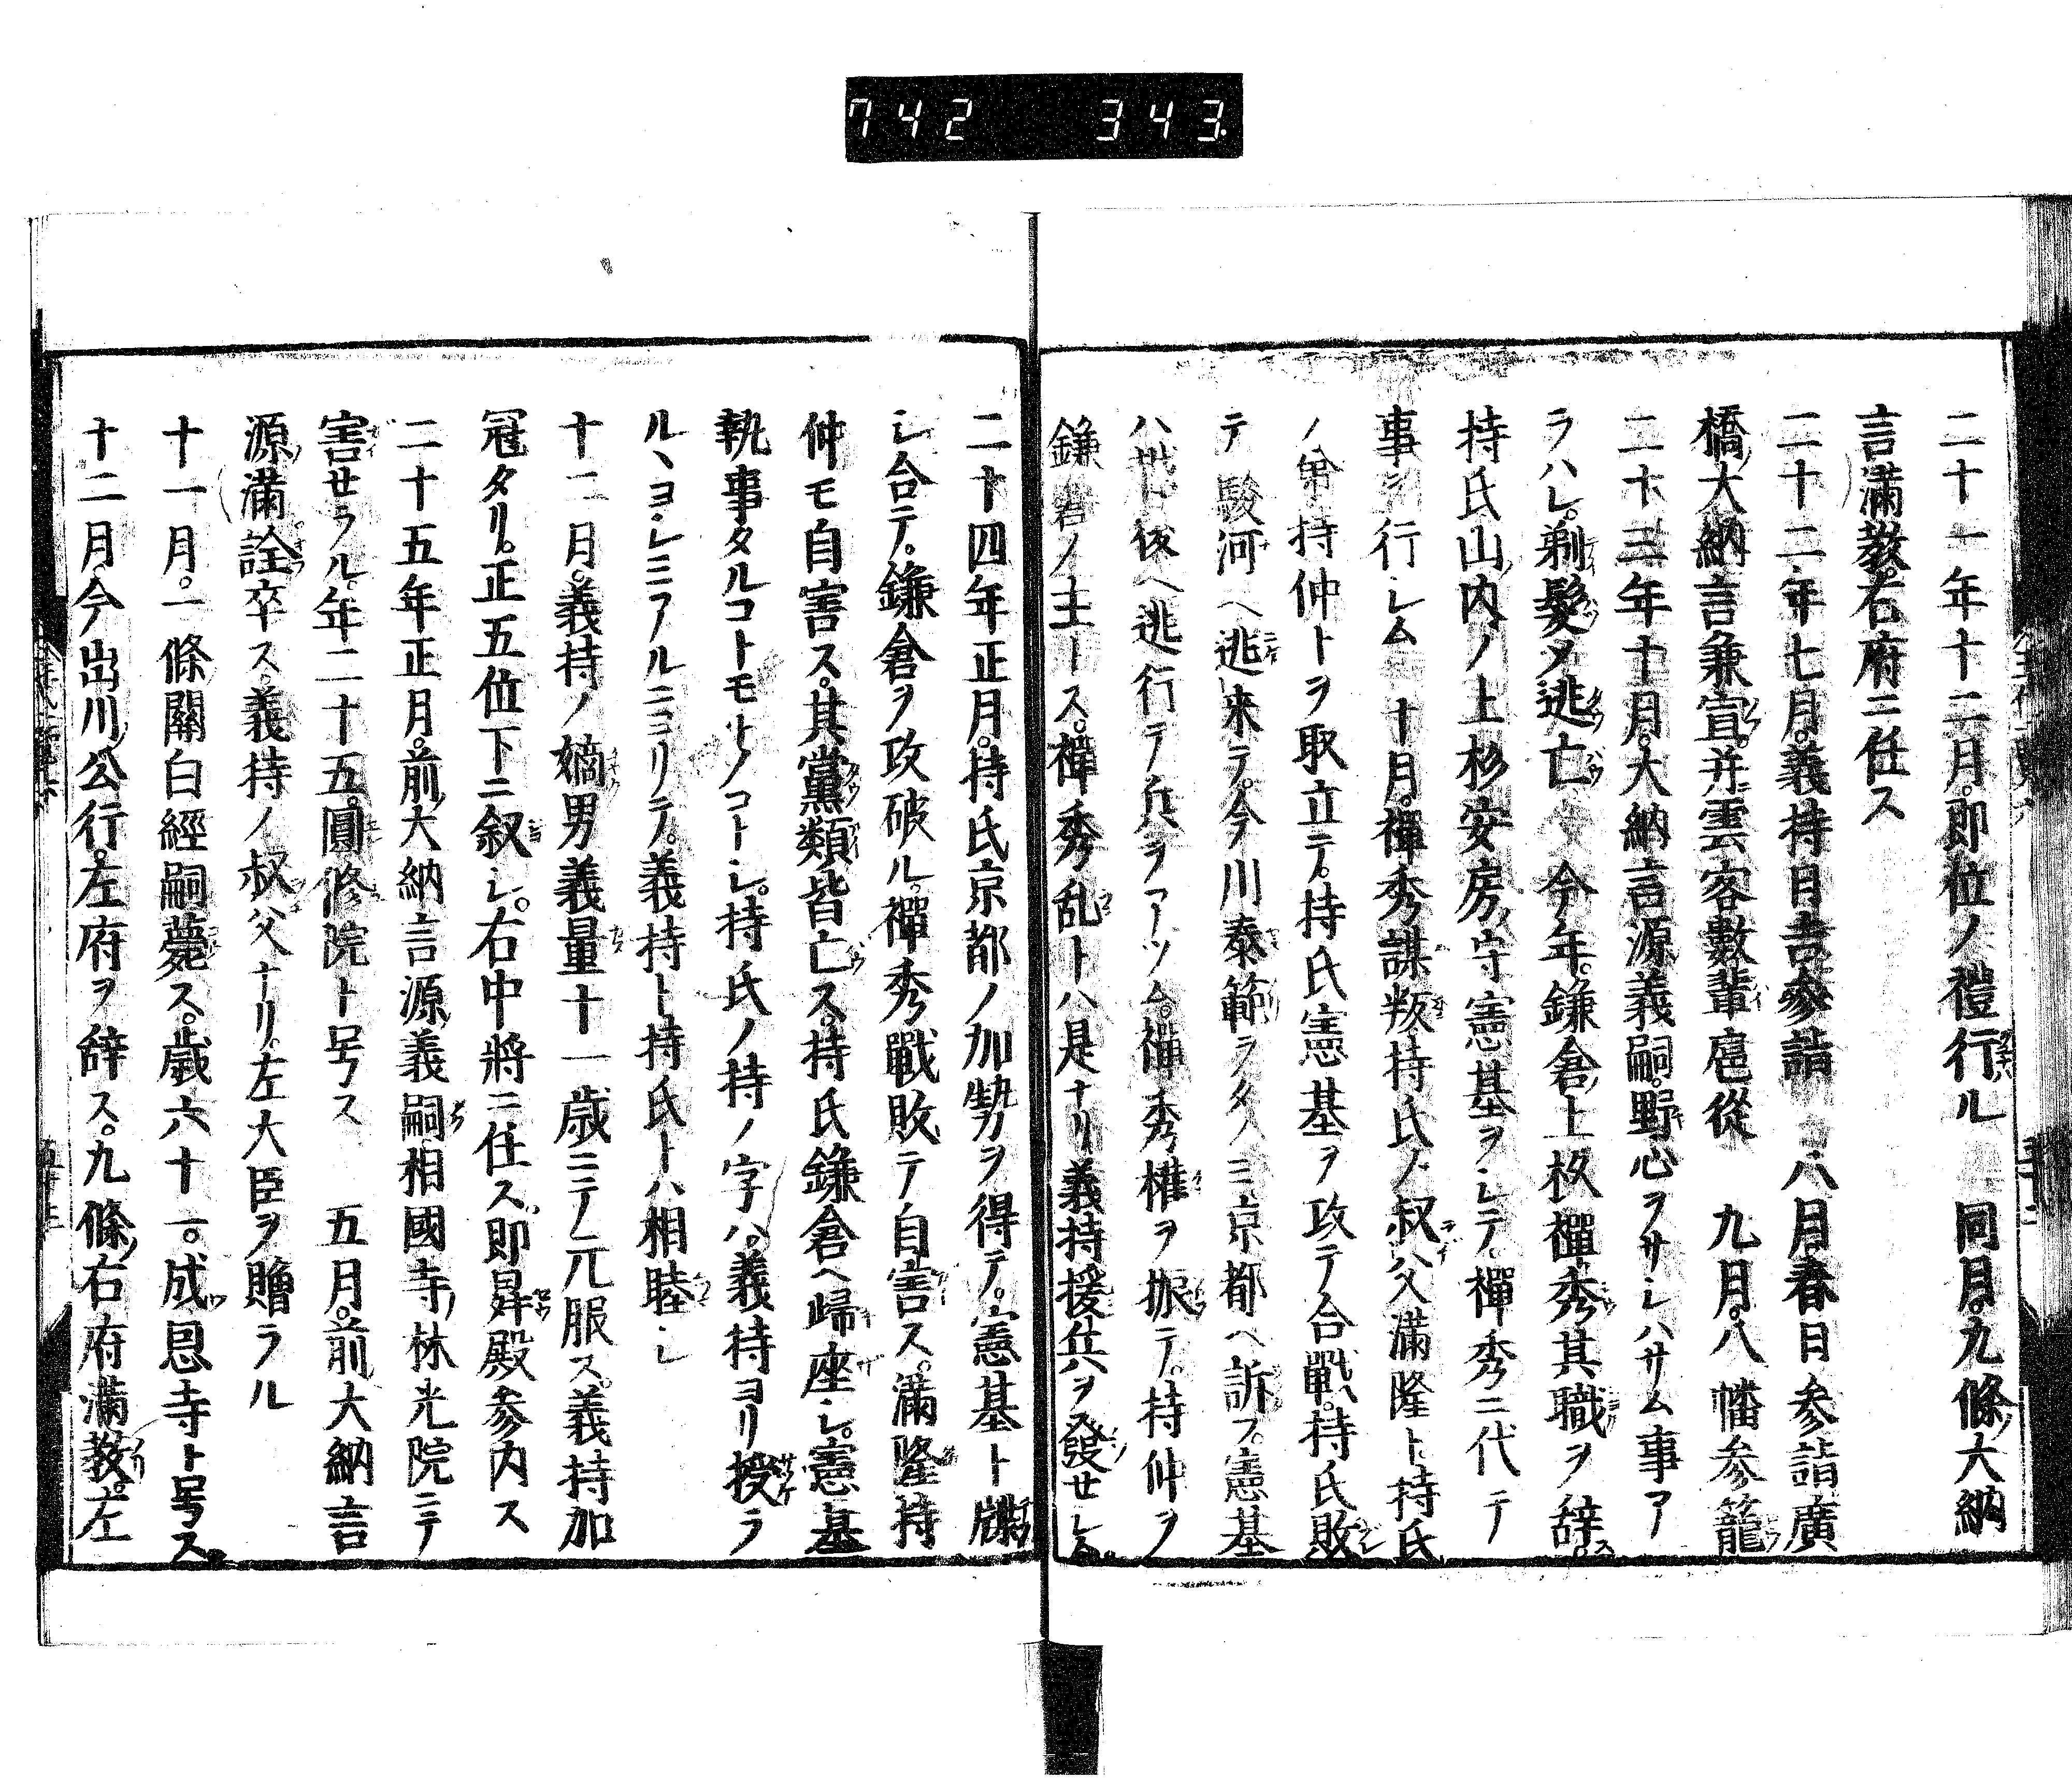 742 343
二十一年十二月。即位ノ禮行ル 同月。九條大納
言滿教。右府ニ任ス
二十二年七月。義持日吉參詣 八月。春日参詣廣
橋大納言兼宣。并雲客數輩扈從 九月。八幡参籠
二十三年十月。大納言源義嗣。野心ヲサシハサム事ア
ラハレ。剃髮ヲ逃亡 今年。鎌倉上杦禪秀其職ヲ辞。
持氏山内ノ上杉安房守憲基ヲシテ。禪秀ニ代テ
事ヲ行シム 十月。禪秀謀叛持氏ノ叔父滿隆ト持氏
ノ弟持仲トヲ取立テ。持氏憲基ヲ攻テ合戰。持氏敗
テ駿河ヘ逃来テ。今川泰範ヲタノミ京都ヘ訴フ。憲基
ハ越後ヘ逃行テ兵ヲアツム。禪秀權ヲ振テ。持仲ヲ
鎌倉ノ主トス。禪秀乱トハ是ナリ義持援兵ヲ發セシム。
二十四年正月。持氏京都ノ加勢ヲ得テ。憲基ト牒
シ合テ。鎌倉ヲ攻破ル。禪秀戰敗テ自害ス。滿隆持
仲モ自害ス。其黨類皆亡ス。持氏鎌倉ヘ歸座シ。憲基
執事タルコトモトノコトシ。持氏ノ持ノ字ハ。義持ヨリ授ラ
ルヽヨシミアルニヨリテ。義持ト持氏トハ相睦シ
十二月。義持ノ嫡男義量十一歳ニテ元服ス。義持加
冠タリ。正五位下ニ叙シ。右中將ニ任ス。即昇殿参内ス
二十五年正月。前大納言源義嗣相國寺林光院ニテ
害セラル。年二十五。圓修院ト号ス 五月。前大納言
源滿詮卒ス。義持ノ叔父ナリ。左大臣ヲ贈ラル
十一月。一條關白經嗣薨ス。歳六十一。成恩寺ト号ス。
十二月。今出川公行。左府ヲ辞ス。九條右府滿教。左